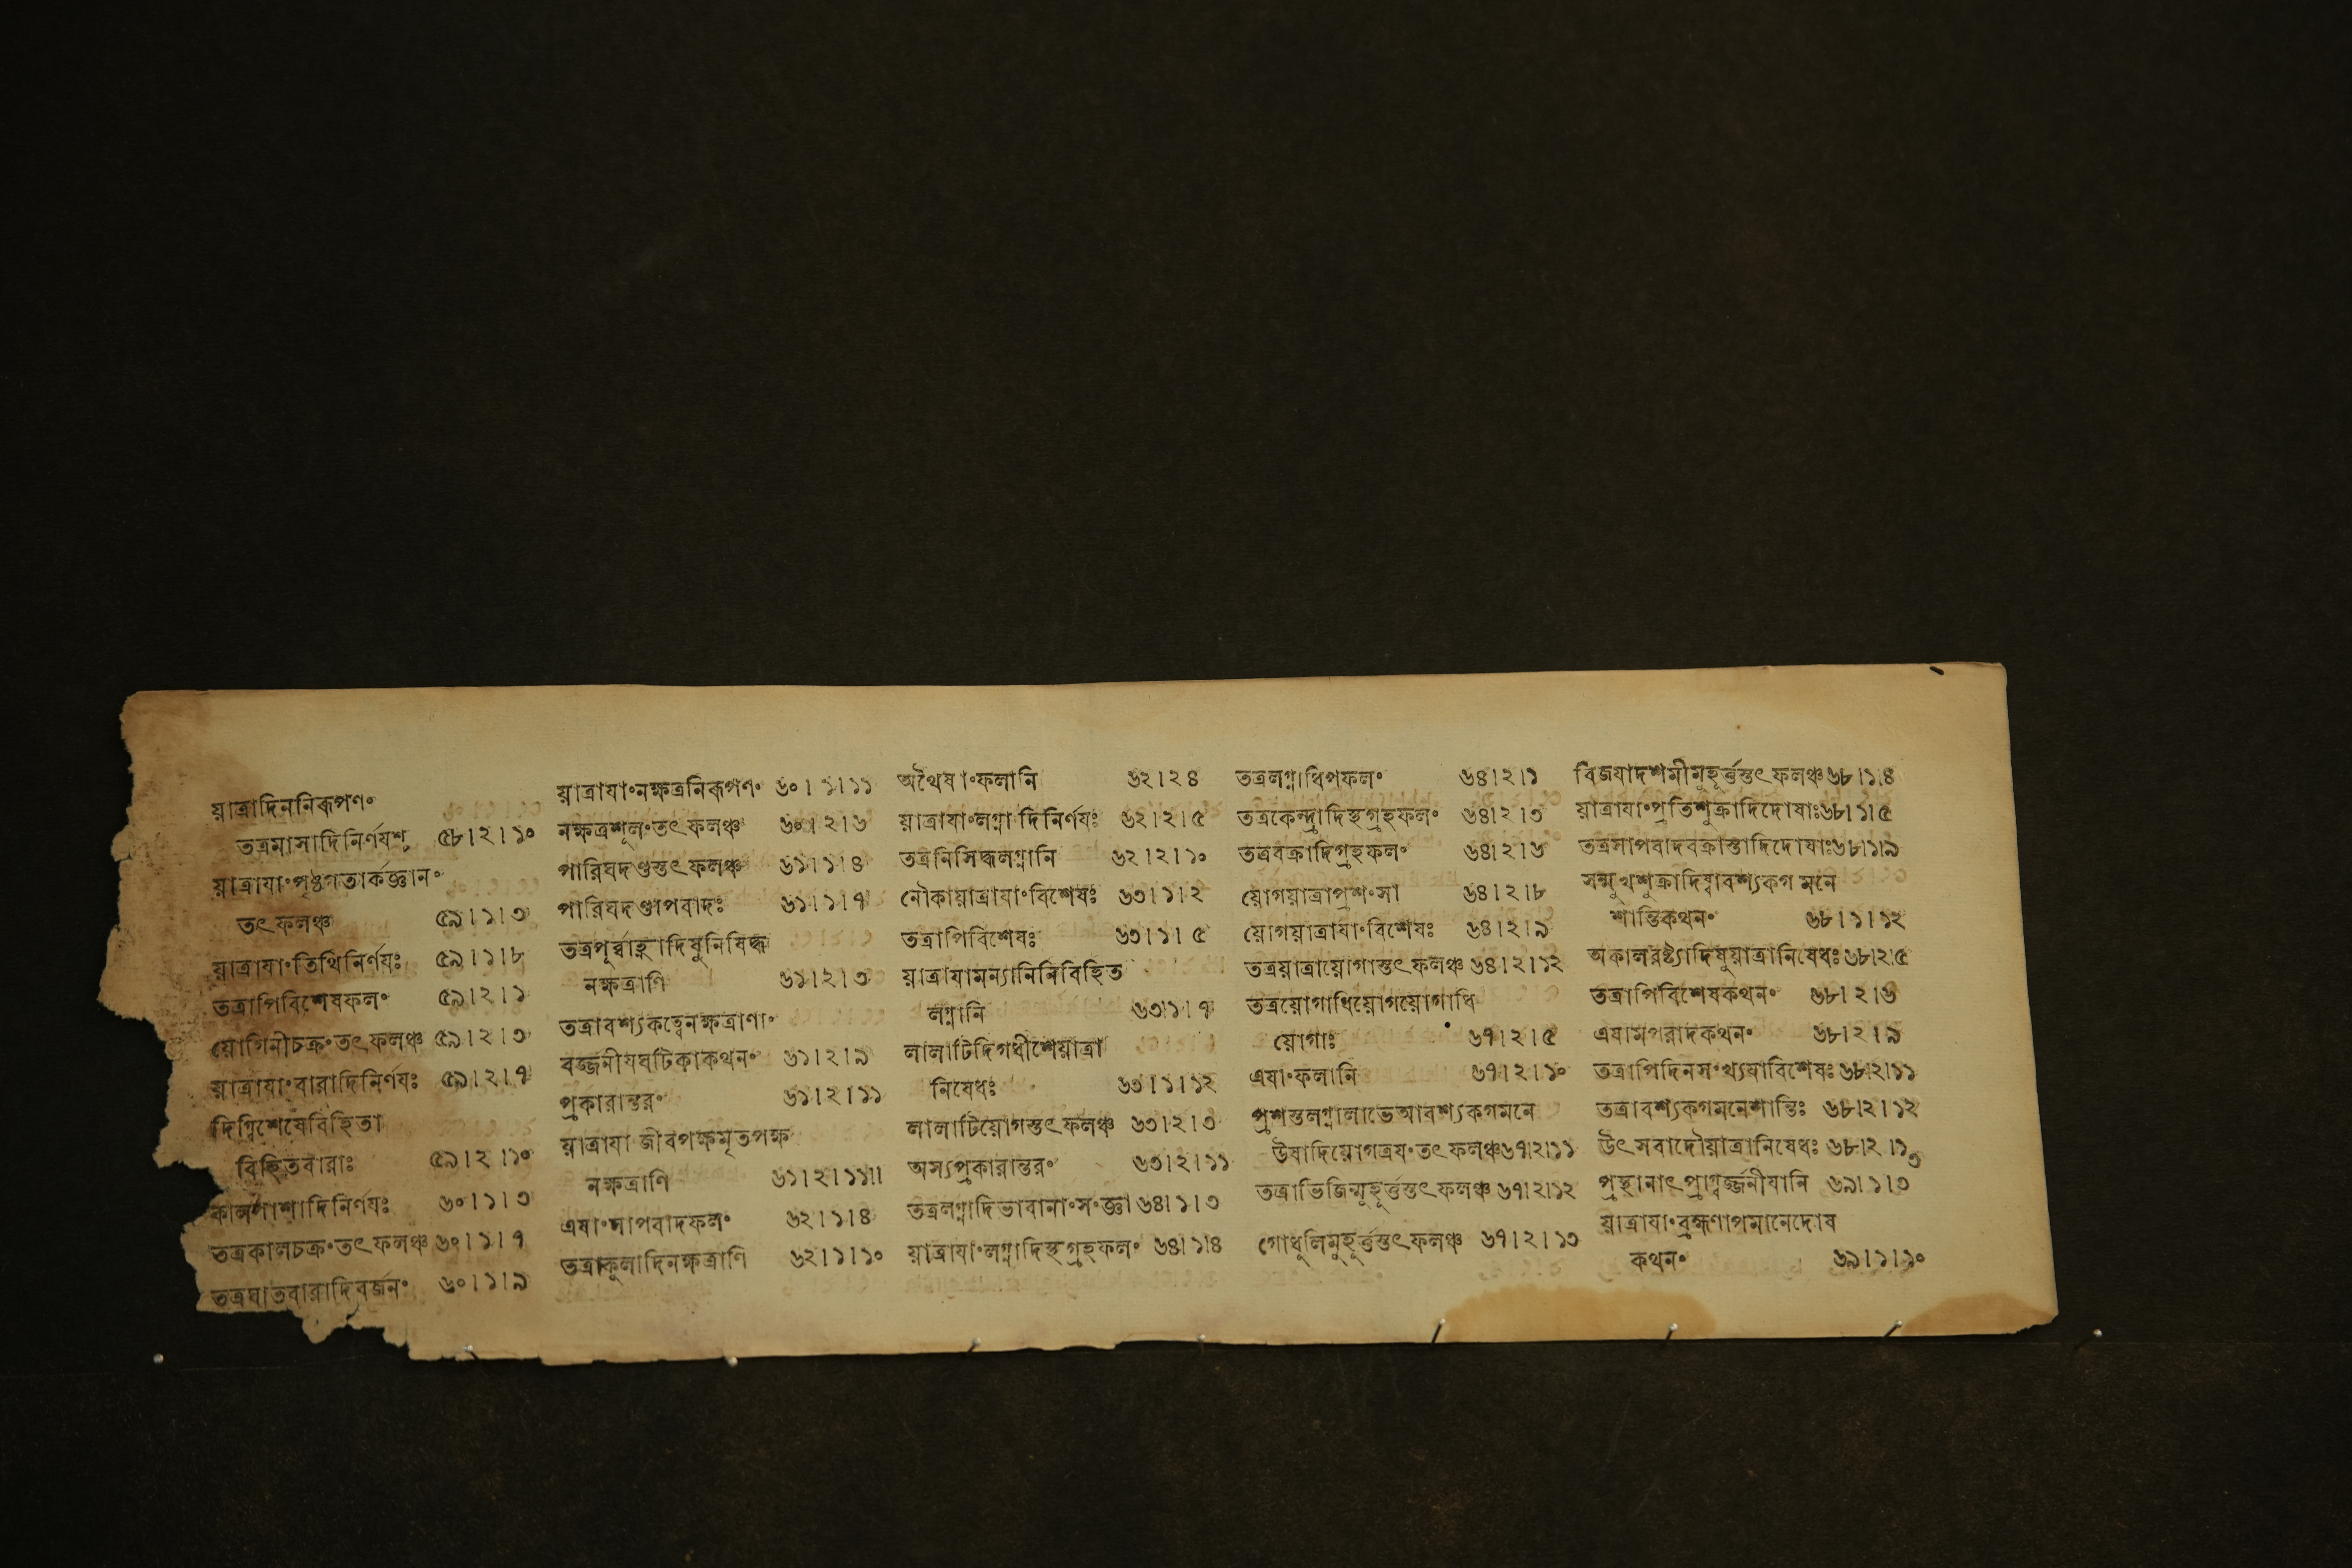 য়াত্রাদিননিরূপণং
তত্রমাসাদিনির্ণযশ্চ ৫৮।২।১০
য়াত্রাযাংপৃষ্ঠগতার্কজ্ঞানং
তৎফলঞ্চ ৫৯।১।৩
য়াত্রাযাংতিথিনির্ণযঃ ৫৯।১।৮
তত্রাপিবিশেষফলং ৫৯।২।১
য়োগিনীচক্রংতৎফলঞ্চ ৫৯।২।৩
য়াত্রাযাংবারাদিনির্ণযঃ ৫৯।২।৭
দিগ্বিশেষেবিহিতা
বিহিতবারাঃ ৫৯।২।১০
কালপাশাদিনির্ণযঃ ৬০।১।৩
তত্রকালচক্রংতৎফলঞ্চ ৬০।১।৭
তত্রঘাতবারাদিবর্জনং ৬০।১।৯
য়াত্রাযাংনক্ষত্রনিরূপণং ৬০।১।১১
নক্ষত্রশূলংতৎফলঞ্চ ৬০।২।৬
পারিঘদণ্ডস্তৎফলঞ্চ ৬১।১।৪
পারিঘদণ্ডাপবাদঃ ৬১।১।৭
তত্রপূর্ব্বাহ্ণাদিষুনিষিদ্ধ
নক্ষত্রাণি ৬১।২।৩
তত্রাবশ্যকত্বেনক্ষত্রাণাং
বর্জ্জনীযঘটিকাকথনং ৬১।২।৯
প্রকারান্তরং ৬১।২।১১
য়াত্রাযা জীবপক্ষমৃতপক্ষ
নক্ষত্রাণি ৬১।২।১১।।
এষাংসাপবাদফলং ৬২।১।৪
তত্রাকুলাদিনক্ষত্রাণি ৬২।১।১০
অথৈষাংফলানি ৬২।২৪
য়াত্রাযাংলগ্নাদিনির্ণযঃ ৬২।২।৫
তত্রনিসিদ্ধলগ্নানি ৬২।২।১০
নৌকায়াত্রাযাংবিশেষঃ ৬৩।১।২
তত্রাপিবিশেষঃ ৬৩।১।৫
য়াত্রাযামন্যানিনিবিহিত
লগ্নানি ৬৩।১।৭
লালাটিদিগধীশেয়াত্রা
নিষেধঃ ৬৩।১।১২
লালাটিয়োগস্তৎফলঞ্চ ৬৩।২।৩
অস্যপ্রকারান্তরং ৬৩।২।১১
তত্রলগ্নাদিভাবানাংসংজ্ঞা ৬৪।১।৩
য়াত্রাযাংলগ্নাদিস্থগ্রহফলং ৬৪।১।৪
তত্রলগ্নাধিপফলং ৬৪।২।১
তত্রকেন্দ্রাদিস্থগ্রহফলং ৬৪।২।৩
তত্রবক্রাদিগ্রহফলং ৬৪।২।৬
য়োগয়াত্রাপ্রশংসা ৬৪।২।৮
য়োগয়াত্রাযাংবিশেষঃ ৬৪।২।৯
তত্রয়াত্রায়োগাস্তৎফলঞ্চ ৬৪।২।১২
তত্রয়োগাধিয়োগয়োগাধি
য়োগাঃ ৬৭।২।৫
এষাংফলানি ৬৭।২।১০
প্রশস্তলগ্নালাভেআবশ্যকগমনে
উষাদিয়োগত্রযংতৎফলঞ্চ ৬৭।২।১১
তত্রাভিজিন্মুহূর্ত্তস্তৎফলঞ্চ ৬৭।২।১২
গোধূলিমুহূর্ত্তস্তৎফলঞ্চ ৬৭।২।১৩
বিজযাদশমীমুহূর্ত্তস্তৎফলঞ্চ ৬৮।১।৪
য়াত্রাযাংপ্রতিশুক্রাদিদোষাঃ ৬৮।১।৫
তত্রসাপবাদবক্রাস্তাদিদোষাঃ ৬৮।১।৯
সন্মুখশুক্রাদিষ্বাবশ্যকগমনে
শান্তিকথনং ৬৮।১।১২
অকালবৃষ্ট্যাদিষুয়াত্রানিষেধঃ ৬৮।২।৫
তত্রাপিবিশেষকথনং ৬৮।২।৬
এষামপবাদকথনং ৬৮।২।৯
তত্রাপিদিনসংখ্যযাবিশেষঃ ৬৮।২।১১
তত্রাবশ্যকগমনেশান্তিঃ ৬৮।২।১২
উৎসবাদৌয়াত্রানিষেধঃ ৬৮।২।১৩
প্রস্থানাৎপ্রাগ্বর্জ্জনীযানি ৬৯।১।৩
য়াত্রাযাংব্রহ্মণাপমানেদোষ
কথনং ৬৯।১।১০